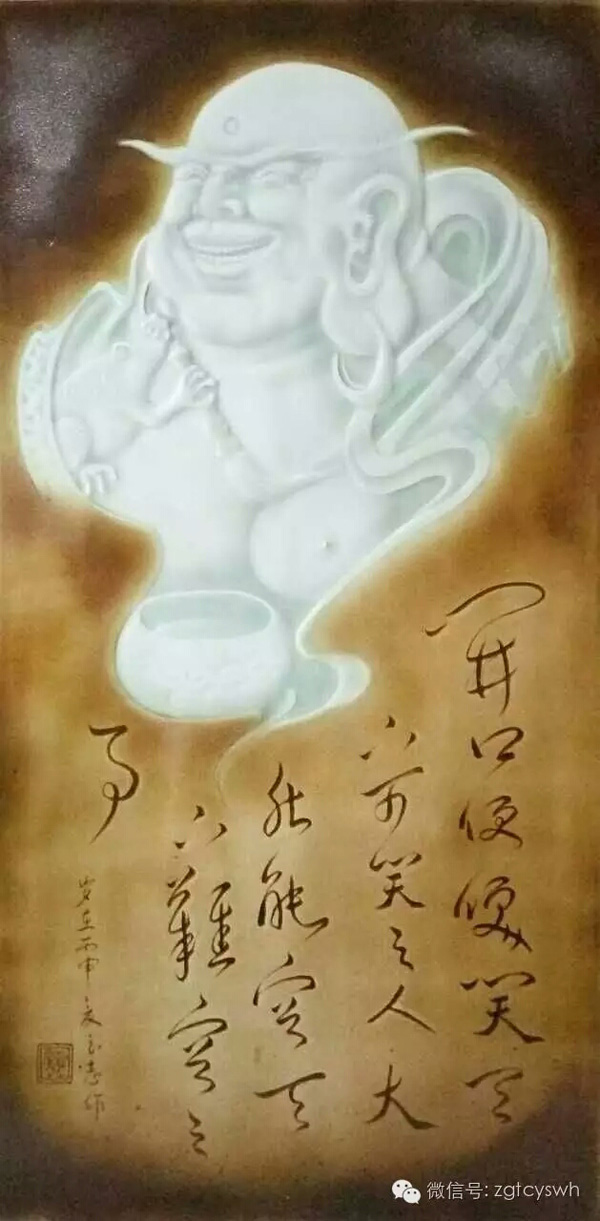 開口便便笑天
下可笑之人大
肚能容天
下難容之
事
岁在丙申夏 志作
微信号: zgtcyswh